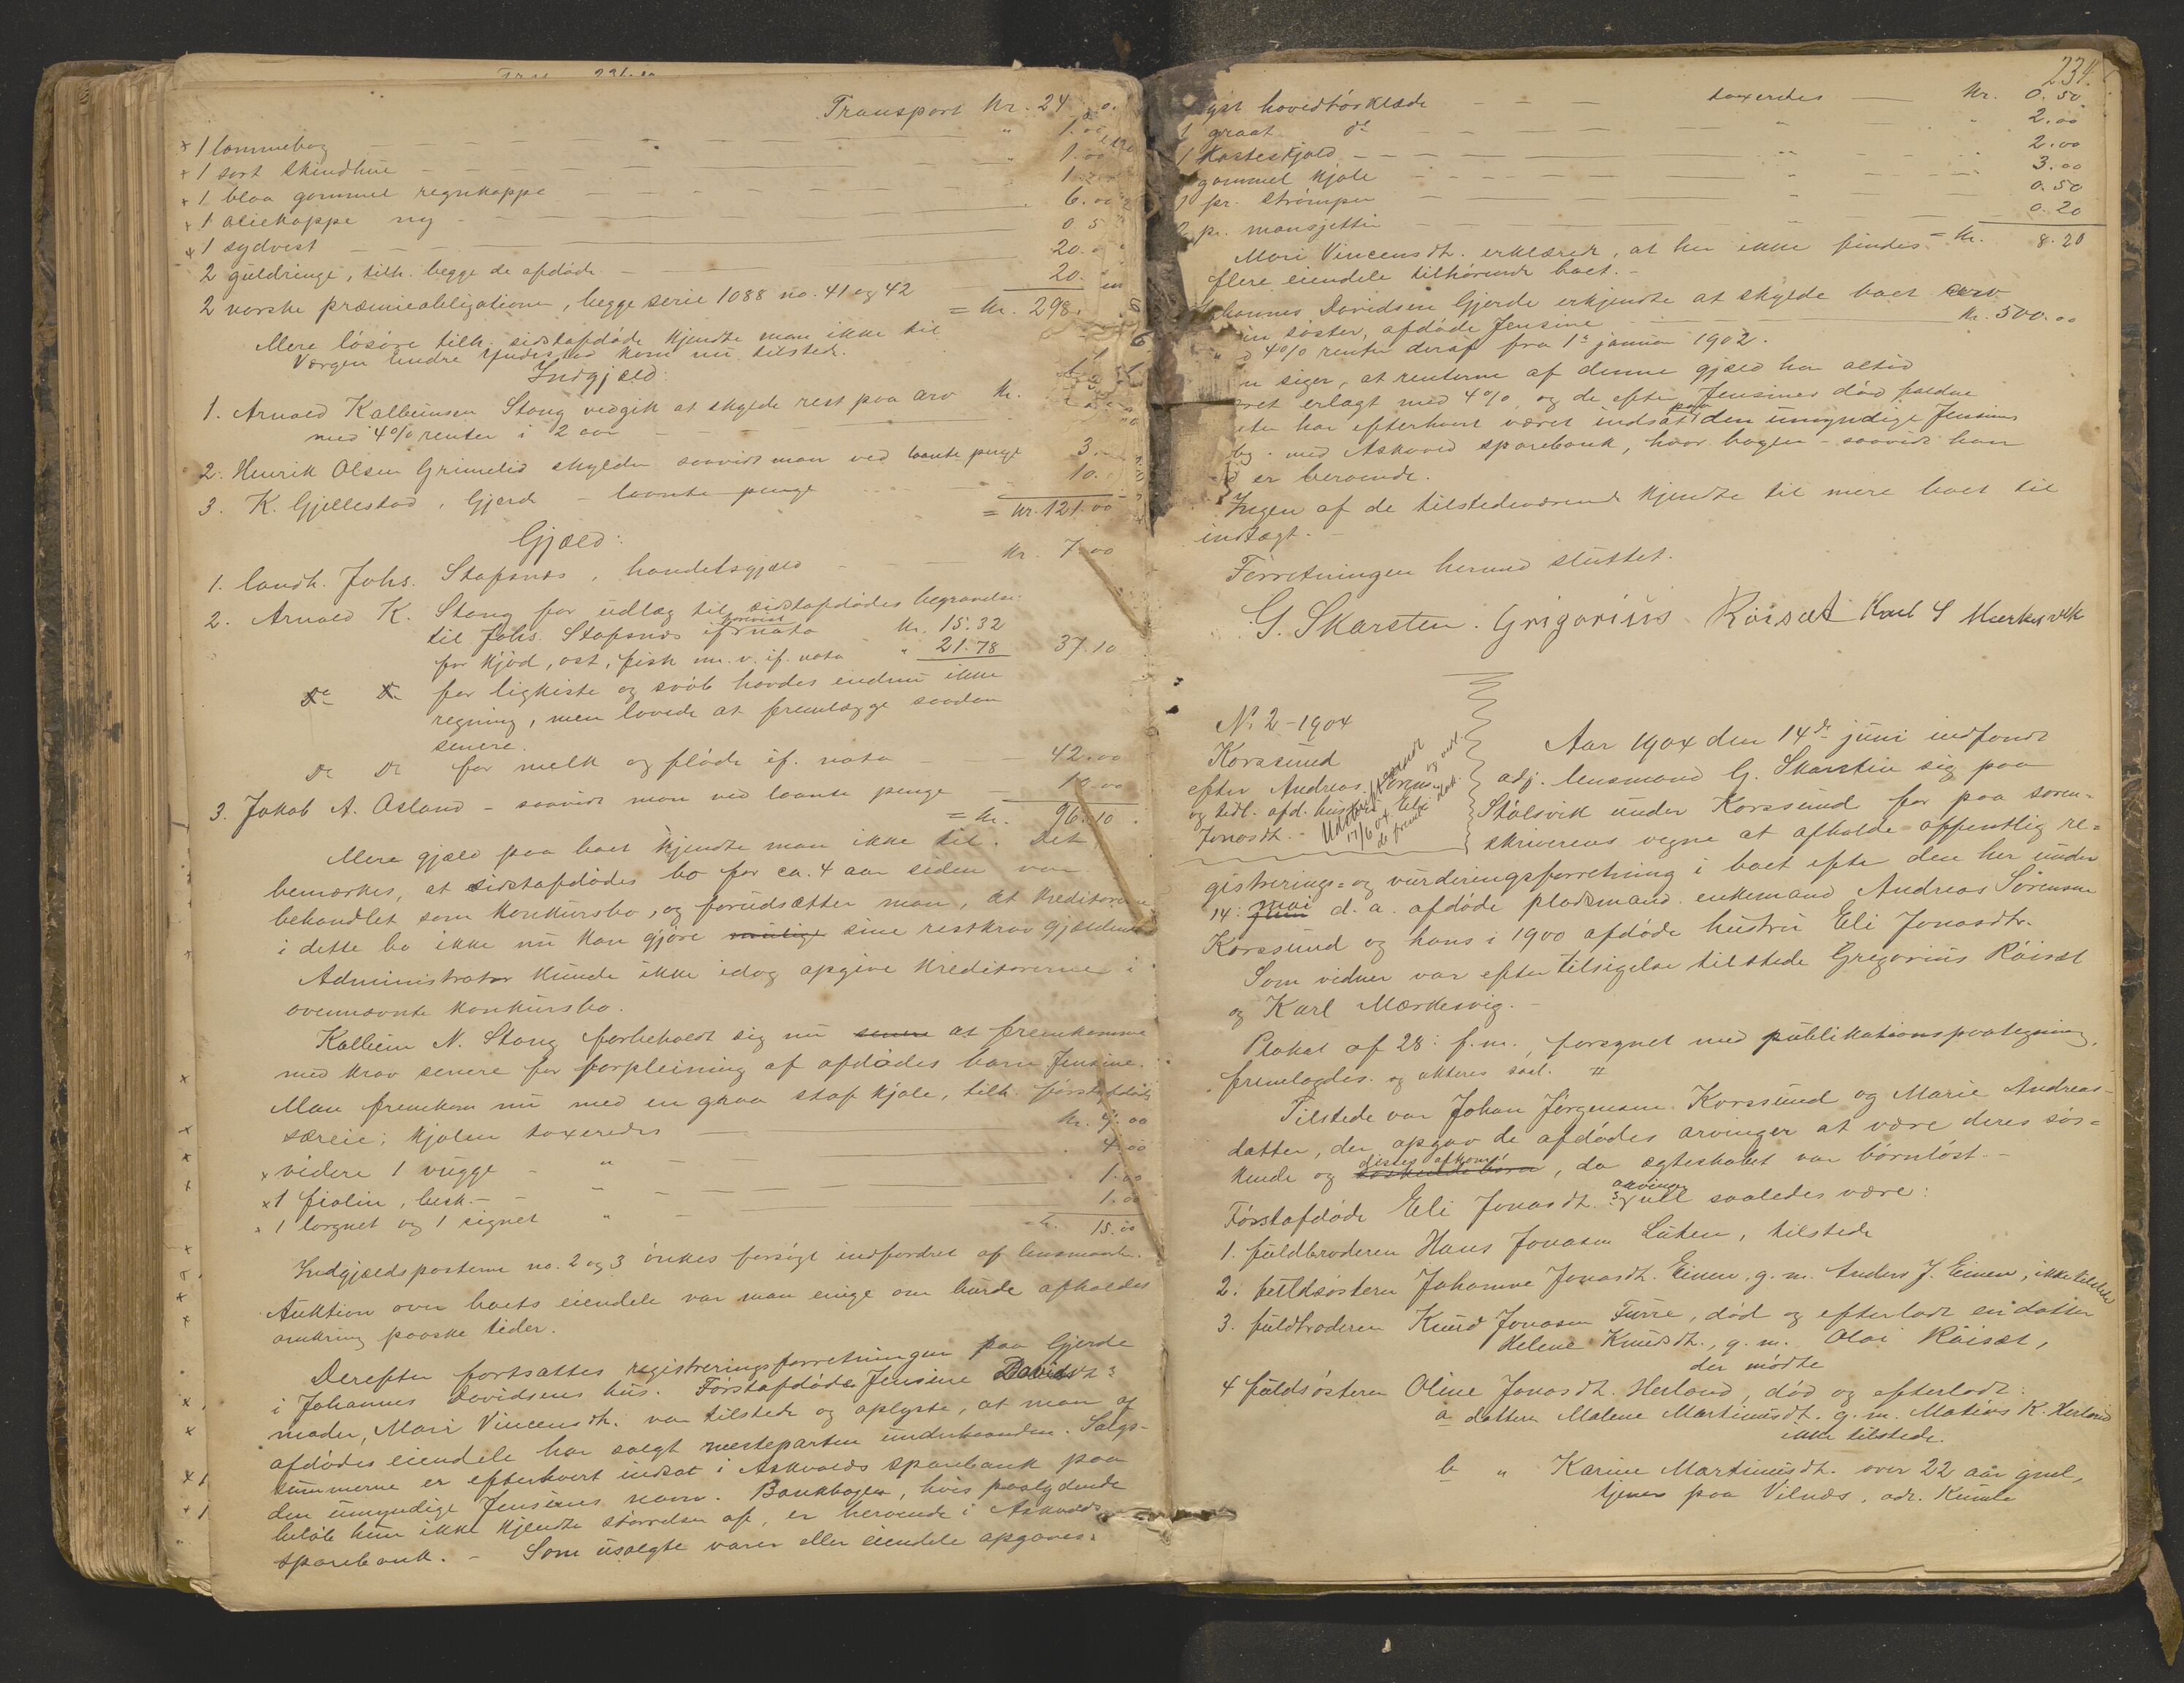 Transport Kr. 24
× 1 lommebog 1.00
× 1 sort skindhue 1.00
× 1 blaa gammel regnkappe 1.
× 1 oliekappe ny 6.00
× 1 sydvest 0.5
2 guldringe, tilh. begge de afdøde 20.
2 norske præmieobligationer, begge serie 1088 no. 41 og 42 20.
= Kr. 298.
Mere løsøre tilh. sidstafdøde kjendte man ikke til
Værgen Endre kom nu tilstede.
Indgjæld:
1. Arnold Kalleinsen Stang vedgik at skylde rest paa arv Kr.
med 4% renter i 2 aar
2. Henrik Olsen Grimelid skylder saavidt man ved laante penge 3.
3. K. Gjellestad, Gjerd - laante penge 10.
= Kr. 121.00
Gjæld:
1. landh. Johs. Stafsnæs, handelsgjæld Kr. 7.00
2. Arnold K. Stang for udlæg til sidstafdødes begravelse
til Johs. Stafsnæs if. nota Kr. 15.32
for kjød, ost, fisk m.v. if. nota " 21.78 37.10
Do Do for ligkiste og svøb havdes endnu ikke
regning, men lovede at fremlægge saadan
senere.
Do Do for melk og fløde if. nota 42.00
3. Jakob A. Osland - saavidt man ved laante penge 10.00
= Kr. 96.10
Mere gjæld paa boet kjendte man ikke til. Det
bemærkes, at sidstafdødes bo for ca. 4 aar siden var
behandlet som konkursbo, og forudsætter man, at kreditorerne
i dette bo ikke nu kan gjøre mulige sine restkrav gjældende
Administrator kunde ikke idag opgive kreditorerne i
ovennævnte konkursbo.
Kallein N. Stang forbeholdt sig nu senere at fremkomme
med krav senere for forpleining af afdødes barn Jensine.
Man fremkom nu med en graa stof kjole, tilh. førstafdøde
særeie; kjolen taxeredes Kr. 9.00
× videre 1 vugge - " 4.00
× 1 fiolin, besk. - " 1.00
× 1 lorgnet og 1 signet " 1.00
Kr. 15.00
Indgjældsposterne no. 2 og 3 ønskes forsøgt indfordret af lensmanden.
Auktion over boets eiendele var man enige om burde afholdes
omkring paaske tider.
Derefter fortsattes registreringsforretningen paa Gjerde
i Johannes Davidsens hus. Førstafdøde Jensine Davidsdt:s
moder, Mari Vincensdt. var tilstede og oplyste, at man af
afdødes eiendele har solgt mesteparten underhaanden. Salgs-
summerne er efterhvert indsat i Askvolds sparebank paa
den umyndige Jensines navn. Bankbogen, hvis paalydende
beløb hun ikke kjendte størrelsen af, er beroende i Askvolds
sparebank. - Som usolgte varer eller eiendele opgaves:
234.
lyst hovedtørklæde taxeredes Kr. 0.50
1 graat do " 2.00
1 Kasteskjold " 2.00
gammel kjole " 3.00
1 pr. strømper " 0.50
2 pr. mansjetter " 0.20
= Kr. 8.20
Mari Vincensdt. erklærede, at her ikke findes
flere eiendele tilhørende boet. -
Johannes Davidsen Gjerde erkjendte at skylde boet arv
sin søster, afdøde Jensine Kr. 500.00
4% renter deraf fra 1s januar 1902.
siger, at renterne af denne gjæld har altid
været erlagt med 4%, og de efter Jensines død faldne
har efterhvert været indsat paa den umyndige Jensines
med Askvold sparebank, hvor bogen - saavidt han
er beroende.
Ingen af de tilstedeværende kjendte til mere boet til
indtægt. -
Forretningen hermed sluttet.
G. Skarsten. Grigorius Röisæt Karl S Mærkesvik
No 2 - 1904
Korssund
efter Andreas Sørens.
og tidl. afd. hustru Eli
Jonasdt. -
Aar 1904 den 14de juni indfandt
adj. lensmand G. Skarstein sig paa
Stølsvik under Korssund for paa soren-
skriverens vegne at afholde offentlig re-
gistrerings- og vurderingsforretning i boet efter den her under
14: juni mai d. a. afdøde pladsmand enkemand Andreas Sørensen
Korssund og hans i 1900 afdøde hustru Eli Jonasdtr.
Som vidner var efter tilsigelse tilstede Gregorius Röisæt
og Karl Mærkesvig. -
Plakat af 28: f.m., forsynet med publikationspaategning,
fremlagdes og akteres saal. #
Tilstede var Johan Jørgensen Korssund og Marie Andreas-
datter, der opgav de afdødes arvinger at være deres søs-
kende og søskendebørn disses afkom, da ægteskabet var børnløst. -
Førstafdøde Eli Jonasdt:s arvinger skal saaledes være:
1. fuldbroderen Hans Jonasen Luten, tilstede
2. fuldsøsteren Johanne Jonasdt. Einen, g. m. Anders J. Einen, ikke tilstede
3. fuldbroderen Knud Jonasen Furre, død og efterladt en datter
Helene Knudsdt., g. m. Olai Röisæt,
der mødte
4 fuldsøsteren Oline Jonasdt. Herland, død og efterladt:
a datteren Malene Martinusdt. g. m. Matias K. Herland
ikke tilstede.
b " Karine Martinusdt. over 22 aar gml.,
tjener paa Vilnæs, adr. Kumle